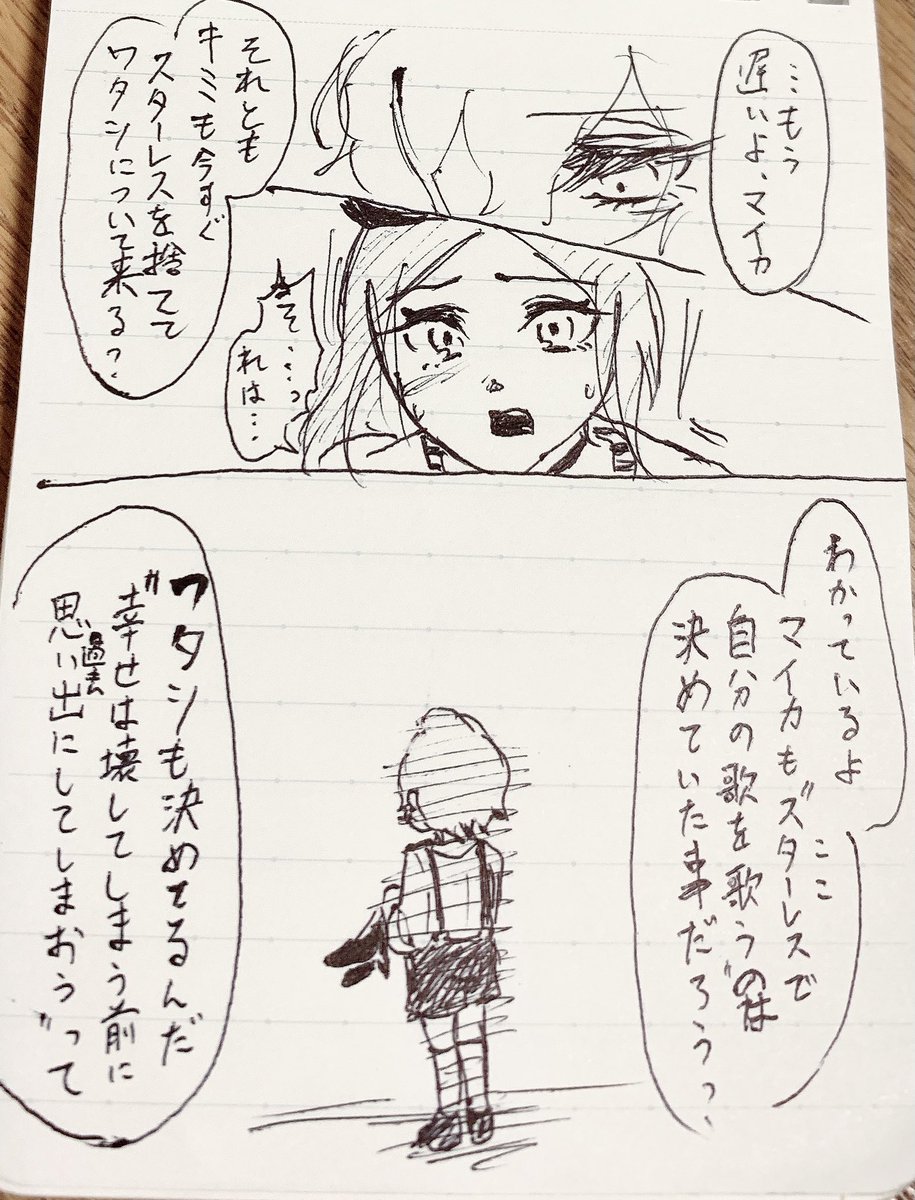 …もう
遅いよ、マイカ
それとも
キミも今すぐ
スターレスを捨てて
ワタシについて来る?
そ…っ
れは…
わかっているよ
マイカも"スターレスで
ここ
自分の歌を歌う"のは
決めていた事だろう?
ワタシも決めてるんだ
"幸せは壊してしまう前に
思い出にしてしまおう"って
過去